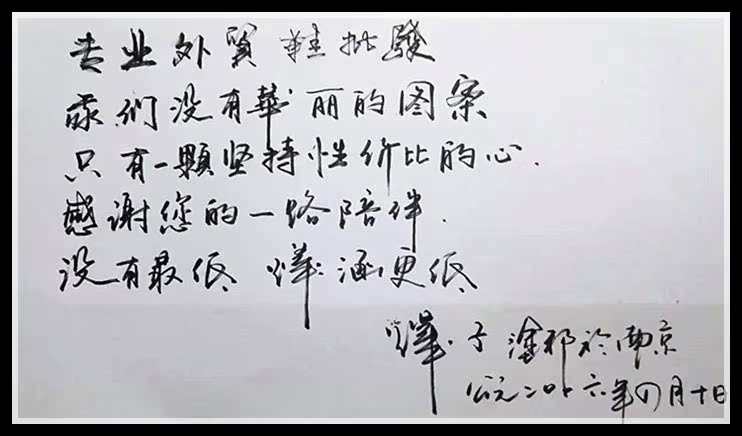 专业外貿鞋批發
我们没有華丽的图案
只有一颗坚持性价比的心.
感谢您的一路陪伴.
没有最低 燁涵更低
燁子涂鸦於南京
公元二0一六年四月十日